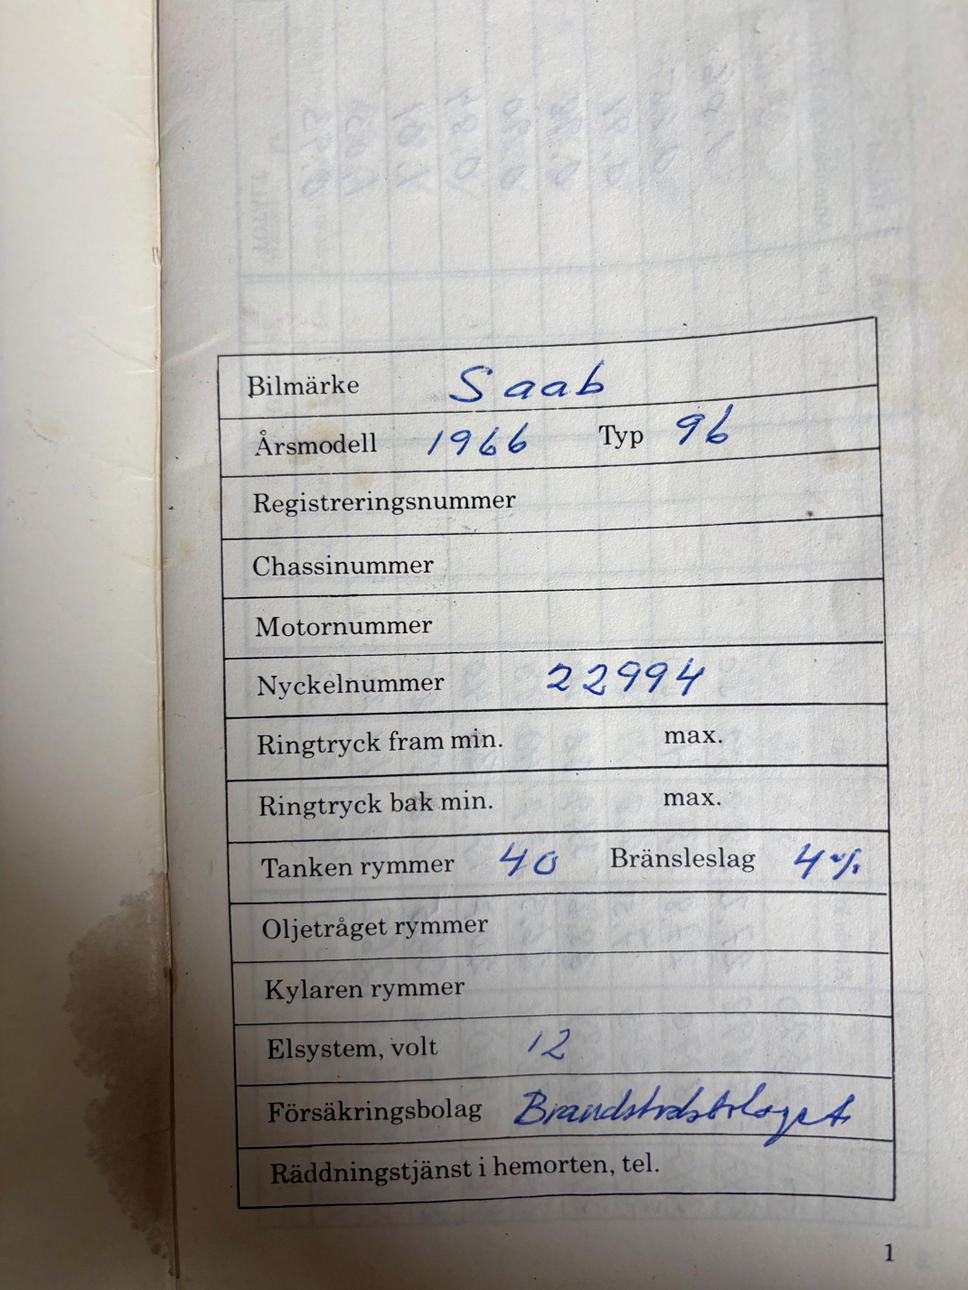 Bilmärke Saab
Årsmodell 1966 Typ 96
Registreringsnummer
Chassinummer
Motornummer
Nyckelnummer 22994
Ringtryck fram min. max.
Ringtryck bak min. max.
Tanken rymmer 40 Bränsleslag 4%
Oljetråget rymmer
Kylaren rymmer
Elsystem, volt 12
Försäkringsbolag
Räddningstjänst i hemorten, tel.
1